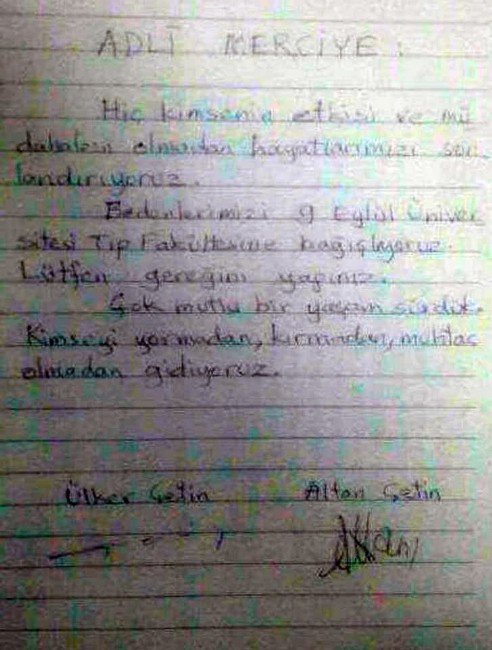 ADLİ MERCİYE:
Hiç kimsenin etkisi ve mü
dahalesi olmadan hayatlarımızı son
landırıyoruz.
Bedenlerimizi 9 Eylül Üniver
sitesi Tıp Fakültesine bağışlıyoruz.
Lütfen gereğini yapınız.
Çok mutlu bir yaşam sürdük.
Kimseyi yormadan, kırmadan, muhtaç
olmadan gidiyoruz.
Ülker Çetin Altan Çetin
Altan